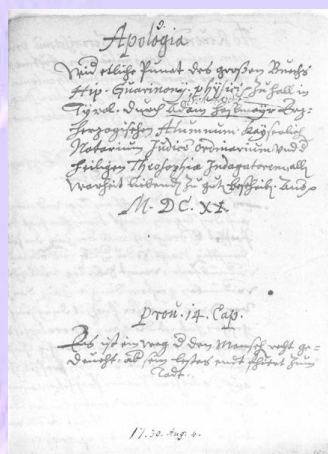 Apologia
Wid etliche Punct des großen Buchs
Hip. Guarinonij, Physici zu Hall in
Tÿrol. durch Adam Haslmayr Erz-
herzogischen Alumnum, Kayserlich
Notarium Judice ordinarium und d
heiligen Theosophia Indagatorem, all
warheit liebend zu gut
M. DC. XX.
Prou. 14. Cap.
Es ist ein weg d den Mensch recht ge-
deucht. ab sein letztes endt führet zum
Todt.
17. 30. Aug. 4.